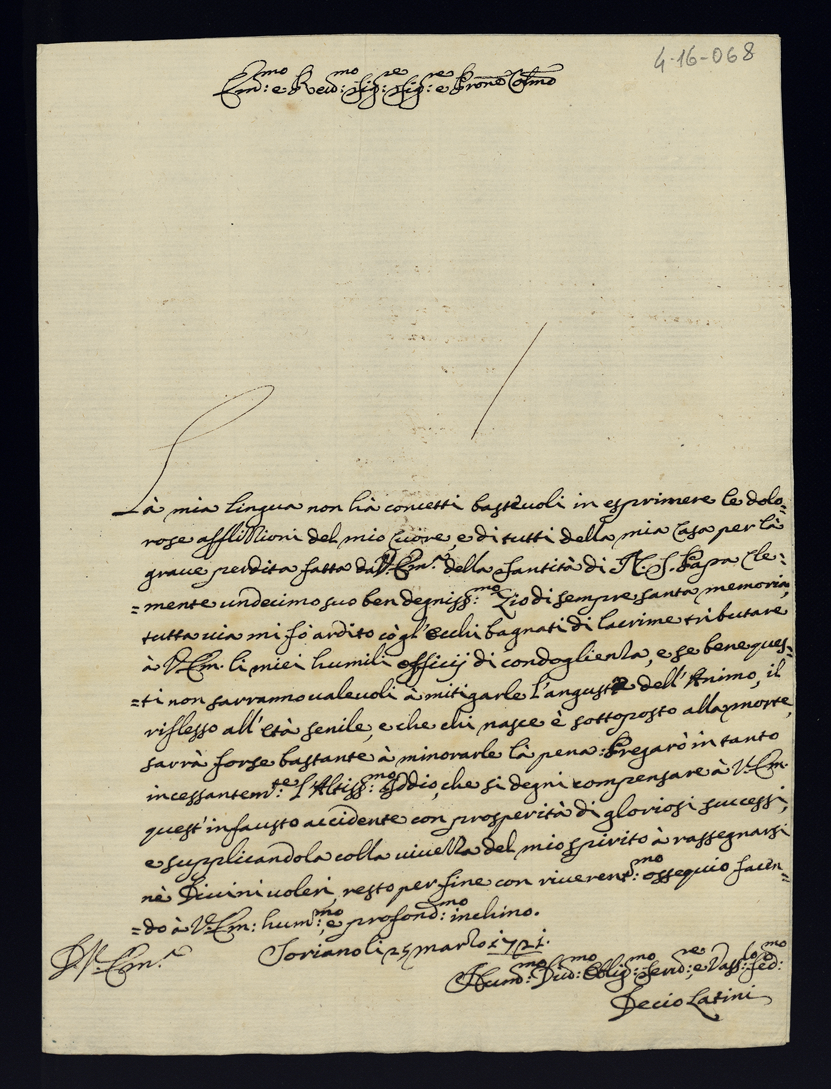 4-16-068
Em:mo e Rev:mo Sig:re Sig:re e Prone Colmo
Là mia lingua non hà concetti bastevoli in esprimere le dolo=
rose afflittioni del mio Cuore, e di tutti della mia Casa per là
grave perdita fatta da V. Em.a della Santità di N. S. Papa Cle:
=mente undecimo suo ben degniss:mo Zio di sempre santa memoria,
tutta via mi fò ardito cò gl'occhi bagnati di lacrime tributare
à V. Em. li miei humili officij di condoglienza, e se bene ques=
=ti non sarranno valevoli à mitigarle l'angustie dell'Animo, il
riflesso all'età senile, e che chi nasce è sottoposto alla morte,
sarrà forse bastante à minorarle là pena. Pregarò in tanto
incessantem:te l'Altiss:mo Iddio, che si degni compensare à V. Em.
quest'infausto accidente con prosperità di gloriosi successi,
e supplicandola colla vivezza del mio spirito à rassegnarsi
nè Divini voleri, resto per fine con riverent:mo ossequio facen=
=do à V. Em: hum:mo, e profond:mo inchino.
D. V. Em.a Soriano li 25 marzo 1721.
Humo:mo Div:mo Oblig:mo Serv:re e Vass:lo fed:mo
Decio Latini